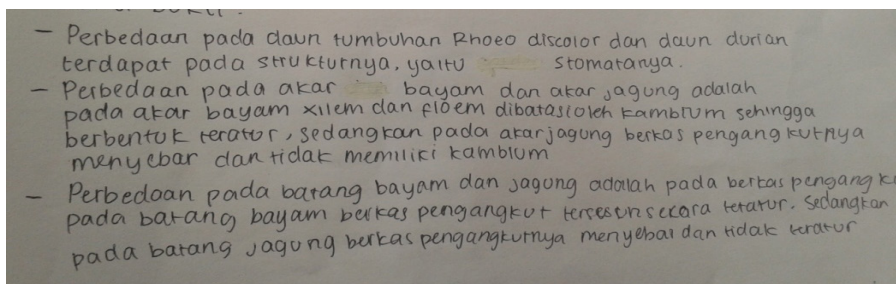 - Perbedaan pada daun tumbuhan Rhoeo discolor dan daun durian
terdapat pada strukturnya, yaitu stomatanya.
- Perbedaan pada akar bayam dan akar jagung adalah
pada akar bayam xilem dan floem dibatasi oleh kambium sehingga
berbentuk teratur, sedangkan pada akar jagung berkas pengangkutnya
menyebar dan tidak memiliki kambium
- Perbedaan pada batang bayam dan jagung adalah pada berkas
pada batang bayam berkas pengangkut secara teratur. Sedangkan
pada batang jagung berkas pengangkutnya menyebar dan tidak teratur